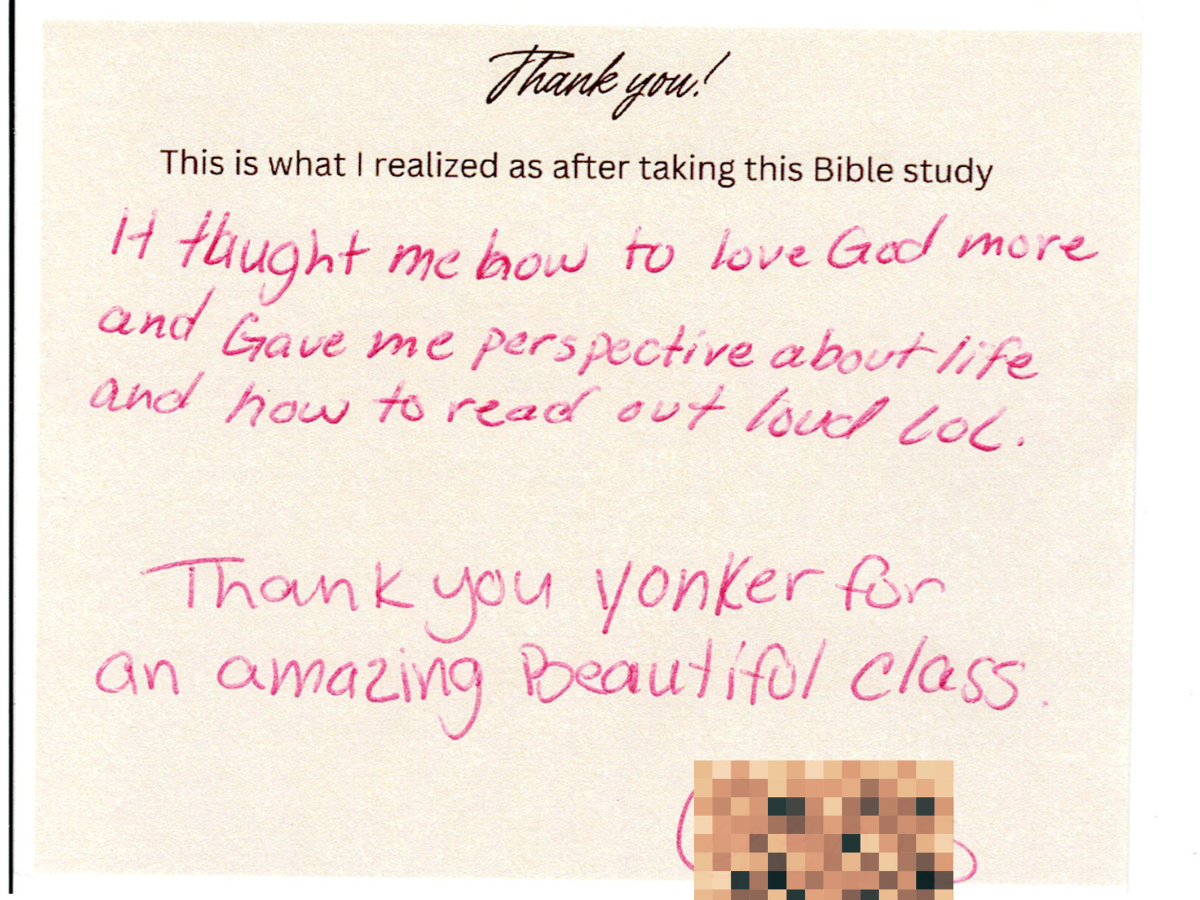 Thank you!
This is what I realized as after taking this Bible study
It thaught me how to love God more
and Gave me perspective about life
and how to read out loud LoL.
Thank you yonker for
an amazing Beautiful class.